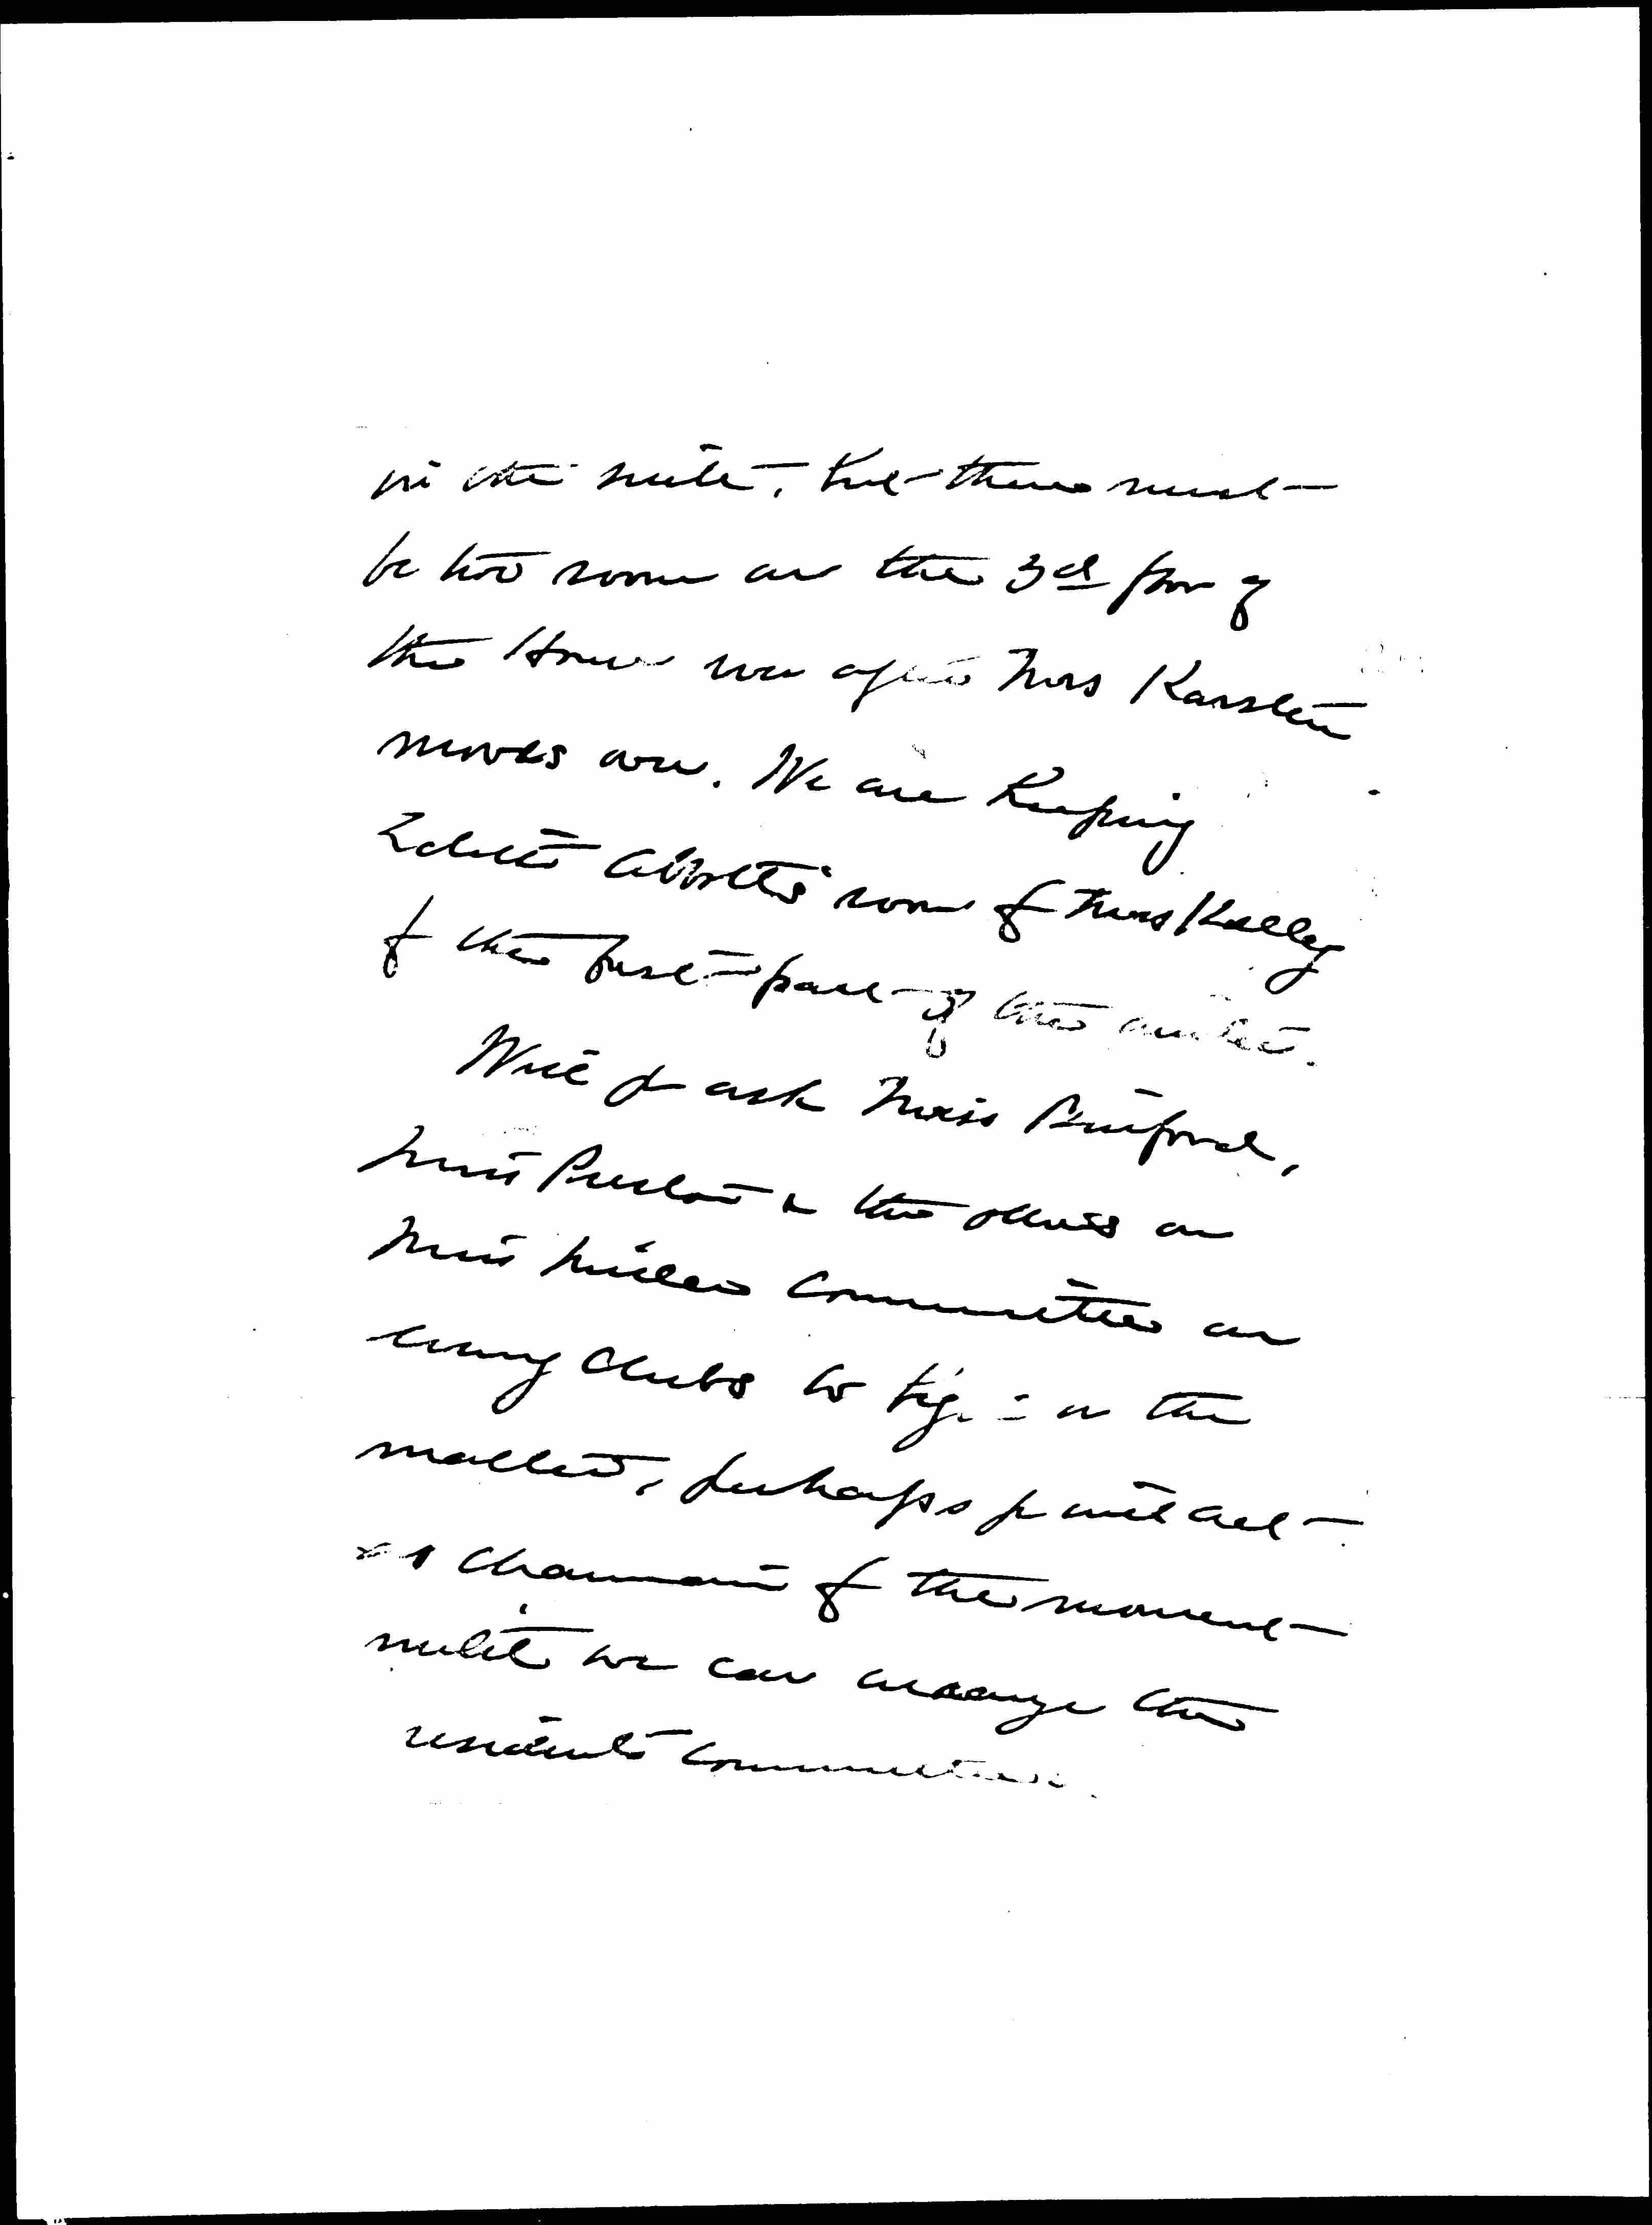 in the suite, but there must
be two rooms on the 3rd floor of
the House now after Mrs Karsten
moves out. We are Keeping
Edith Abbott's room for Mrs Kelley
for the first part of the
Will you ask Miss Binford,
Miss & the others on
Miss Committee on
Clubs to begin on the
matter, perhaps you will act
as chairman for the moment
until we can arrange the
residents committee.